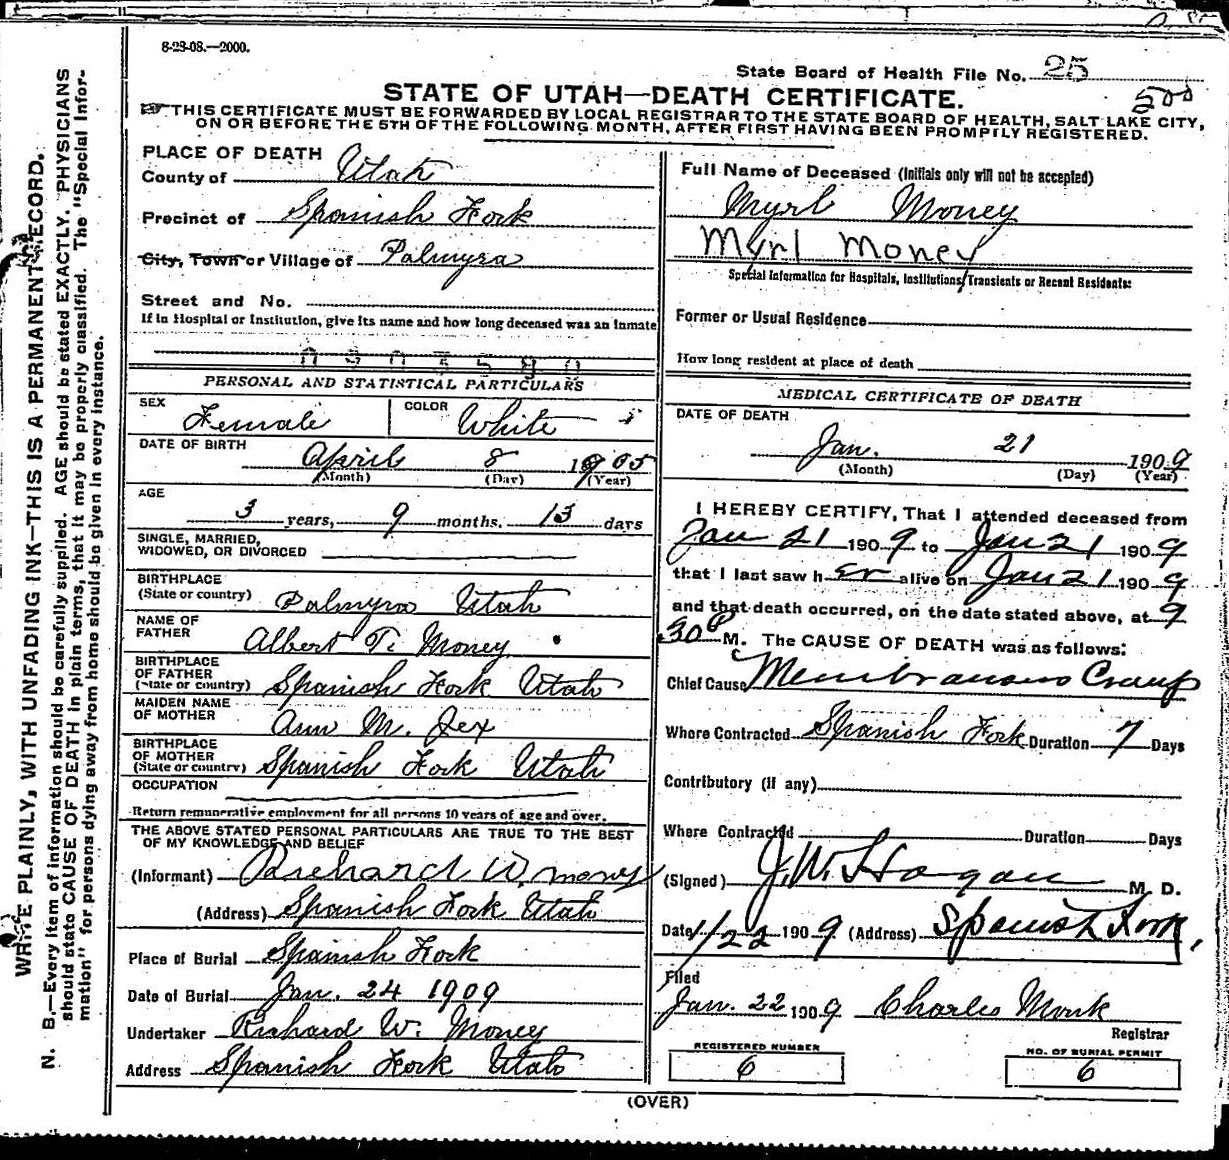 8-23-08.—2000.
State Board of Health File No. 25
500
STATE OF UTAH—DEATH CERTIFICATE.
THIS CERTIFICATE MUST BE FORWARDED BY LOCAL REGISTRAR TO THE STATE BOARD OF HEALTH, SALT LAKE CITY,
ON OR BEFORE THE 5TH OF THE FOLLOWING MONTH, AFTER FIRST HAVING BEEN PROMPTLY REGISTERED.
WRITE PLAINLY, WITH UNFADING INK—THIS IS A PERMANENT RECORD.
N. B.—Every item of information should be carefully supplied. AGE should be stated EXACTLY. PHYSICIANS
should state CAUSE OF DEATH in plain terms, that it may be properly classified. The "Special Infor-
mation" for persons dying away from home should be given in every instance.
PLACE OF DEATH
County of Utah
Precinct of Spanish Fork
City, Town or Village of Palmyra
Street and No.
If in Hospital or Institution, give its name and how long deceased was an inmate
PERSONAL AND STATISTICAL PARTICULARS
SEX Female COLOR White
DATE OF BIRTH
April 8 1905
(Month) (Day) (Year)
AGE
3 years, 9 months, 13 days
SINGLE, MARRIED,
WIDOWED, OR DIVORCED
BIRTHPLACE
(State or country) Palmyra Utah
NAME OF
FATHER Albert T. Money
BIRTHPLACE
OF FATHER
(State or country) Spanish Fork Utah
MAIDEN NAME
OF MOTHER Ann M. Jex
BIRTHPLACE
OF MOTHER
(State or country) Spanish Fork Utah
OCCUPATION
Return remunerative employment for all persons 10 years of age and over.
THE ABOVE STATED PERSONAL PARTICULARS ARE TRUE TO THE BEST
OF MY KNOWLEDGE AND BELIEF
(Informant) Richard W. Money
(Address) Spanish Fork Utah
Place of Burial Spanish Fork
Date of Burial Jan. 24 1909
Undertaker Richard W. Money
Address Spanish Fork Utah
Full Name of Deceased (Initials only will not be accepted)
Myrl Money
Myrl Money
Special Information for Hospitals, Institutions, Transients or Recent Residents:
Former or Usual Residence
How long resident at place of death
MEDICAL CERTIFICATE OF DEATH
DATE OF DEATH
Jan. 21 1909
(Month) (Day) (Year)
I HEREBY CERTIFY, That I attended deceased from
Jan 21 1909 to Jan 21 1909
that I last saw her alive on Jan 21 1909
and that death occurred, on the date stated above, at 9
30 P M. The CAUSE OF DEATH was as follows:
Chief Cause Membranous Croup
Where Contracted Spanish Fork Duration 7 Days
Contributory (if any)
Where Contracted Duration Days
(Signed) J. W. Hagan M. D.
Date 1/22 1909 (Address) Spanish Fork.
Filed
Jan. 22 1909 Charles Monk
Registrar
REGISTERED NUMBER
6
NO. OF BURIAL PERMIT
6
(OVER)